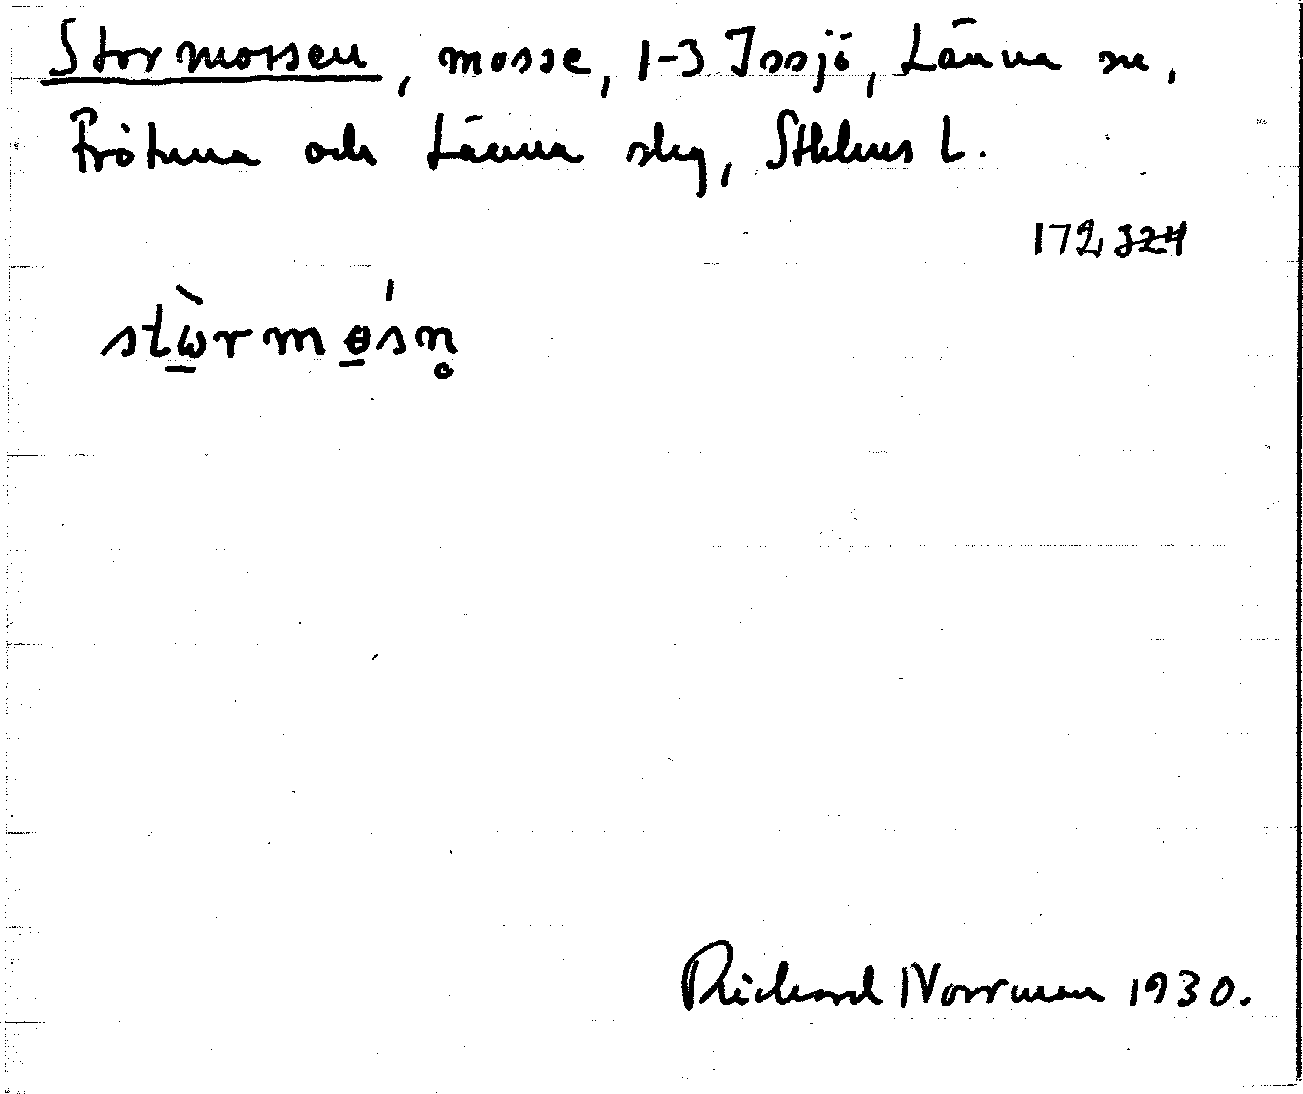 Stormossen, mosse, 1-3 Issjö, Länna sn,
Frötuna och Länna skg, Sthlms L.
172 324
stὼ̱rmɵ̱́sn̥
Richard Norrman 1930.